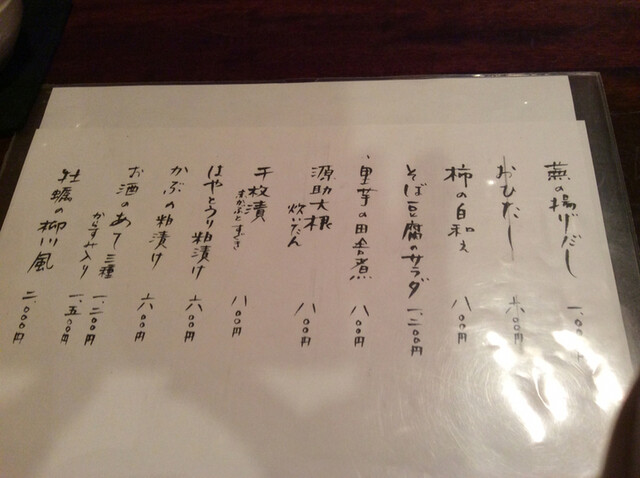 蕪の揚げだし 一、〇〇〇円
おひたし 六〇〇円
柿の白和え 八〇〇円
そば豆腐のサラダ 一、二〇〇円
里芋の田舎煮 八〇〇円
源助大根 炊いたん 八〇〇円
千枚漬 八〇〇円
はやとうり粕漬け 六〇〇円
かぶの粕漬け 六〇〇円
お酒のあて三種 一、二〇〇円
からすみ入り 一、五〇〇円
牡蠣の柳川風 二、〇〇〇円